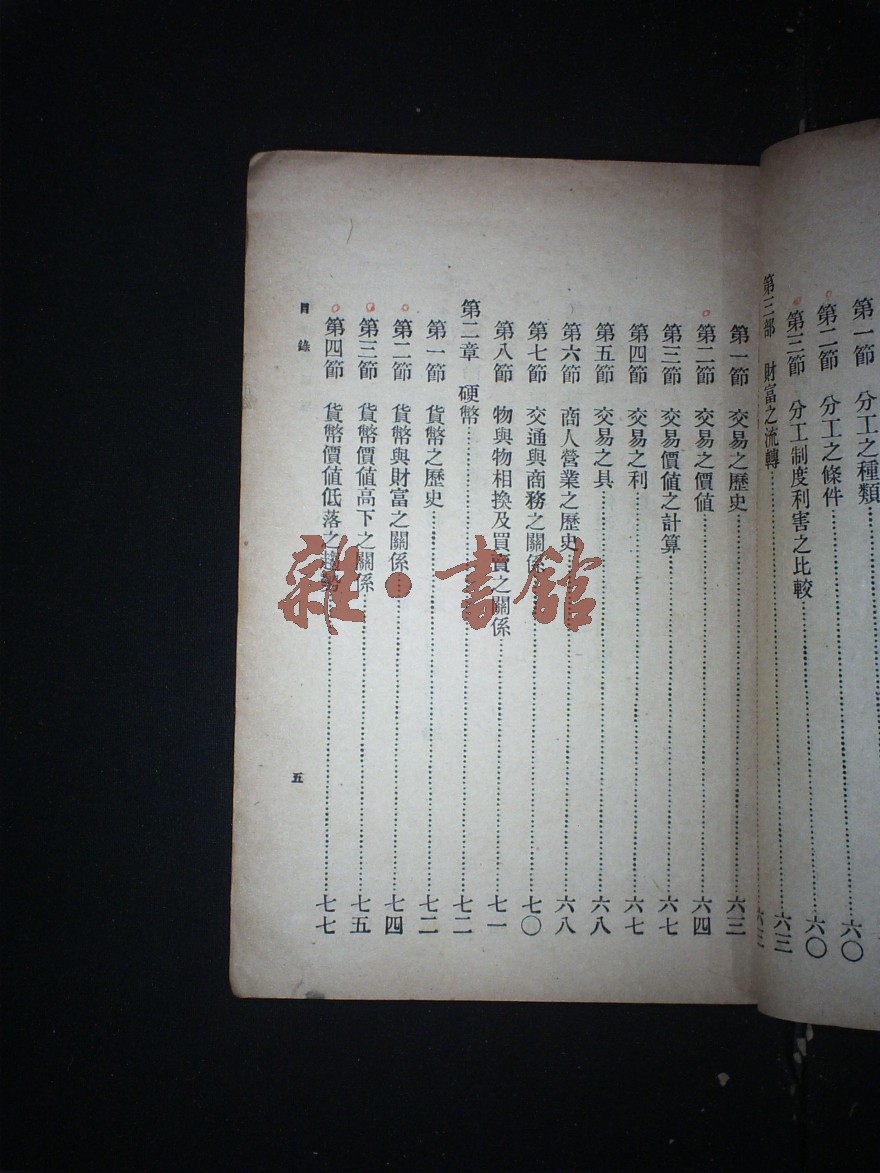 第一節　分工之種類……六〇
第二節　分工之條件……六〇
第三節　分工制度利害之比較……六三
第三部　財富之流轉……六三
第一節　交易之歷史……六三
第二節　交易之價值……六四
第三節　交易價值之計算……六七
第四節　交易之利……六七
第五節　交易之具……六八
第六節　商人營業之歷史……六八
第七節　交通與商務之關係……七〇
第八節　物與物相換及買賣之關係……七一
第二章　硬幣……七二
第一節　貨幣之歷史……七二
第二節　貨幣與財富之關係……七四
第三節　貨幣價值高下之關係……七五
第四節　貨幣價值低落之趨勢……七七
目錄
五
雜·書館